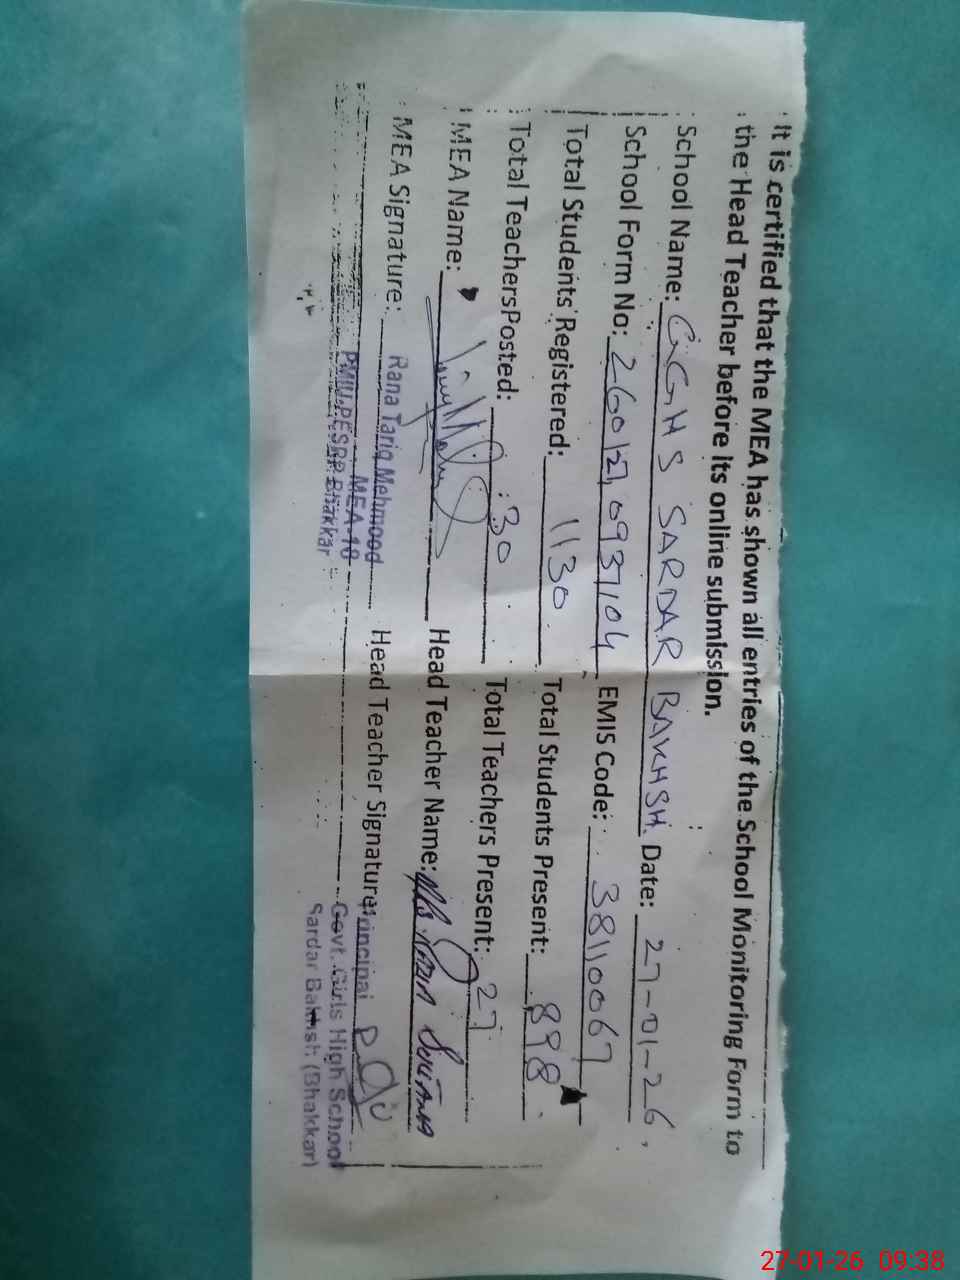 It is certified that the MEA has shown all entries of the School Monitoring Form to
the Head Teacher before its online submission.
School Name: GGHS SARDAR BAKHSH Date: 27-01-26
School Form No: 260127093704 EMIS Code: 38110067
Total Students Registered: 1130 Total Students Present: 898
Total Teachers Posted: 30 Total Teachers Present: 27
MEA Name: Head Teacher Name:
MEA Signature: Rana Tariq Mehmood Head Teacher Signature: Principal
MEA-10 Govt. Girls High School
PMIU-PESRP Bhakkar Sardar Bakhsh (Bhakkar)
27-01-26 09:38